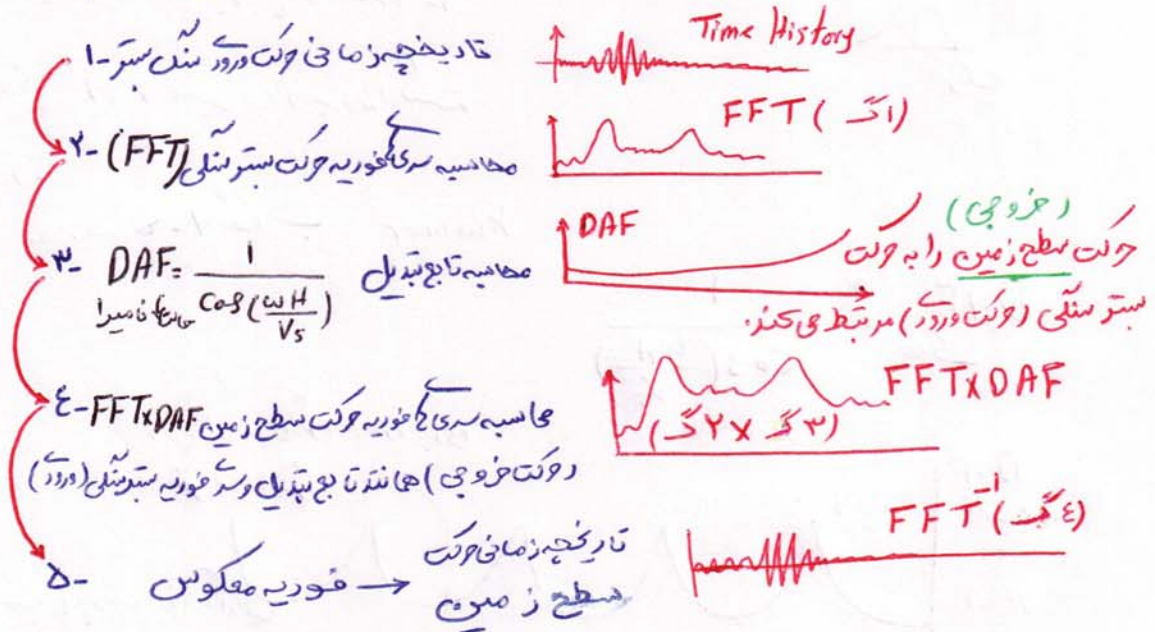 ۱- تاریخچه زمانی حرکت ورودی سنگ بستر
Time History
۲- محاسبه سری فوریه حرکت بستر سنگی (FFT)
FFT (گ۱)
۳- DAF = 1 / Cos(ωH/Vs) محاسبه تابع تبدیل
نامیرا
DAF
(خروجی)
حرکت سطح زمین را به حرکت
بستر سنگی (حرکت ورودی) مرتبط می کند.
٤- محاسبه سری فوریه حرکت سطح زمین FFT×DAF
(حرکت خروجی) همانند تابع تبدیل و سری فوریه بستر سنگی (ورودی)
FFT×DAF
(گ۳ × گ۲)
۵- فوریه معکوس → تاریخچه زمانی حرکت
سطح زمین
FFT⁻¹ (گ٤)